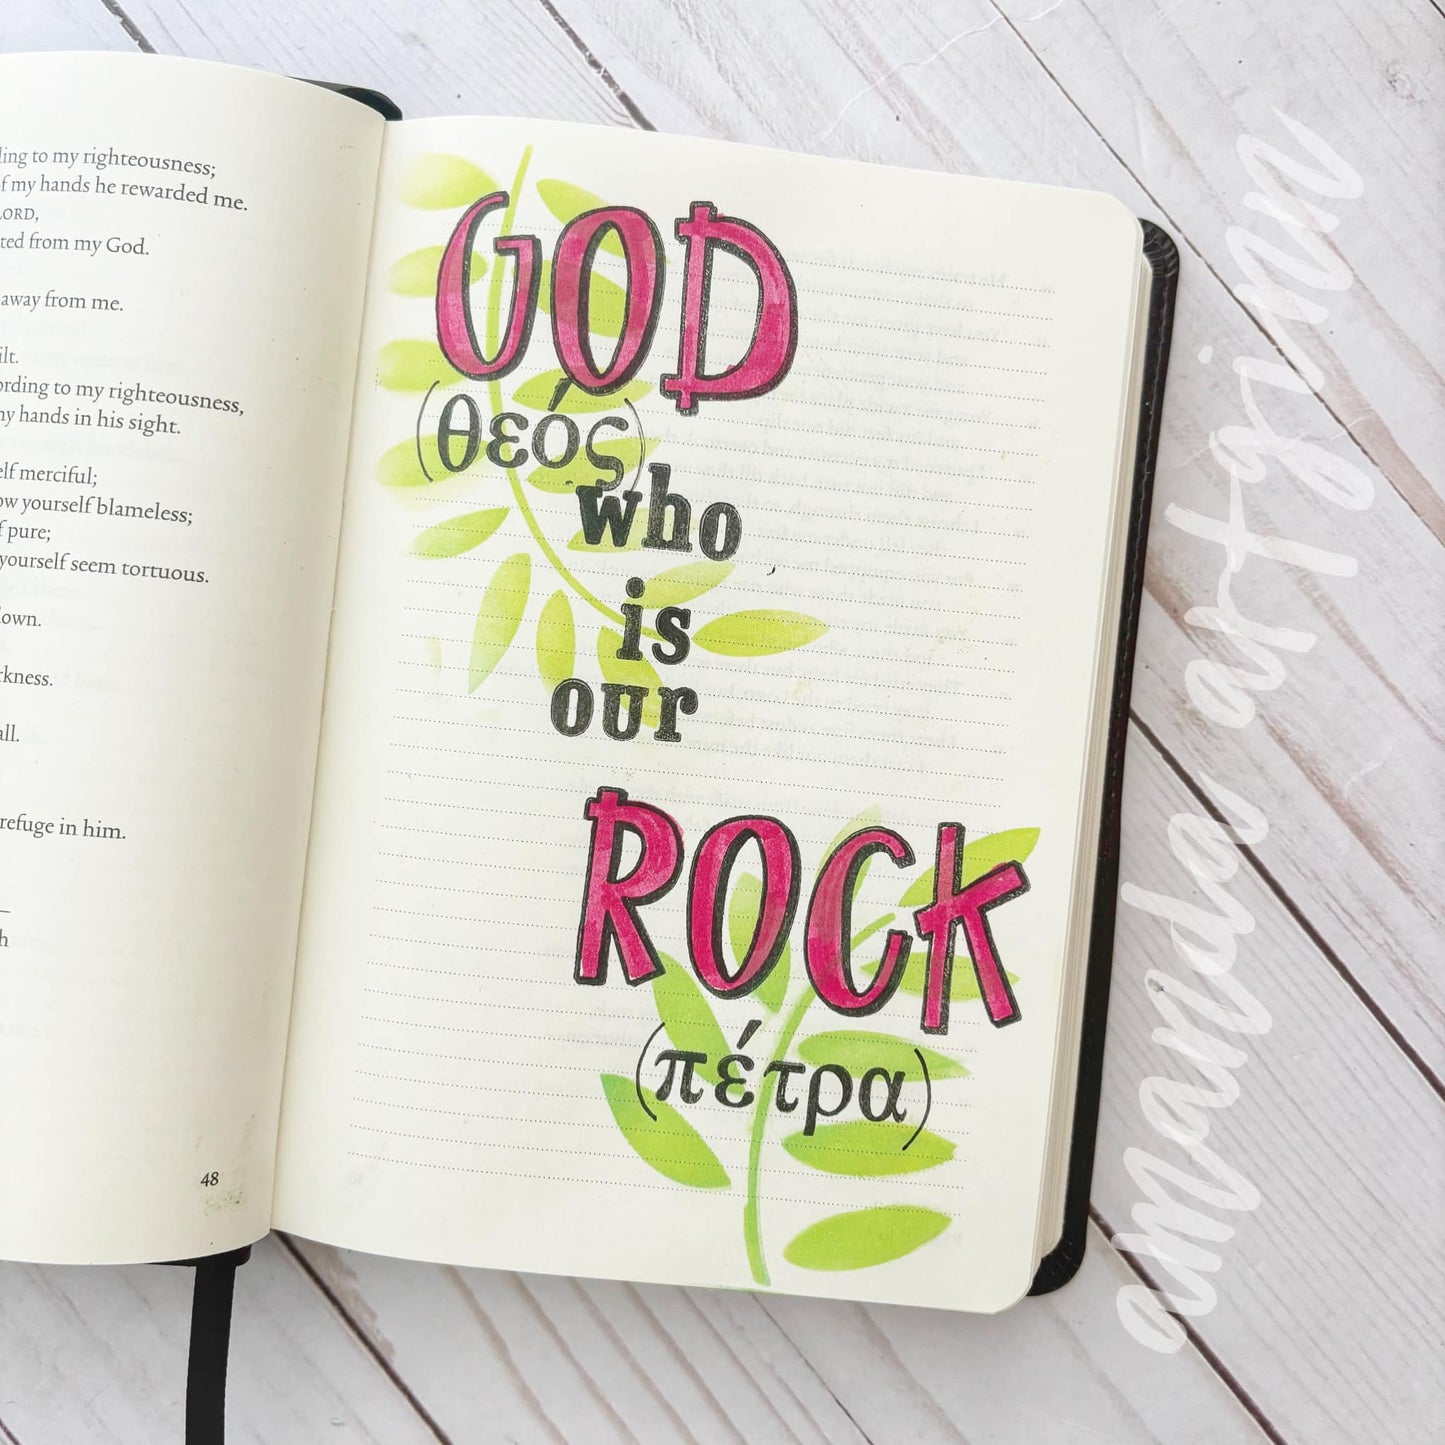 ding to my righteousness;
of my hands he rewarded me.
LORD,
ted from my God.
away from me.
ilt.
ording to my righteousness,
my hands in his sight.
elf merciful;
ow yourself blameless;
f pure;
yourself seem tortuous.
down.
rkness.
all.
refuge in him.
h
48
GOD
(θεός)
who
is
our
ROCK
(πέτρα)
amanda art grinn